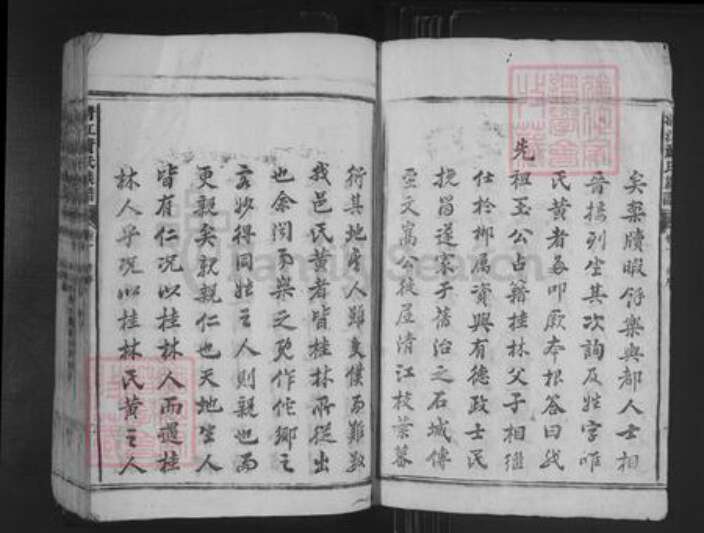 矣案牘暇餘樂與都人士相
晉接列坐其次詢及姓字唯
氏黃者每叩厥本根答曰我
先祖玉公占籍桂林父子相繼
仕於郴属資興有德政士民
挽留遂家于舊治之石城傳
至文富公徙居清江枝葉蕃
衍其地与人雖更僕而難數
我邑氏黃者皆桂林所從出
也余聞而樂之既作佗鄉之
客妙得同姓之人則親也而
更親矣親親仁也天地生人
皆有仁况以桂林人而遇桂
林人乎况以桂林氏黃之人
清江黃氏族譜
FamilySearch